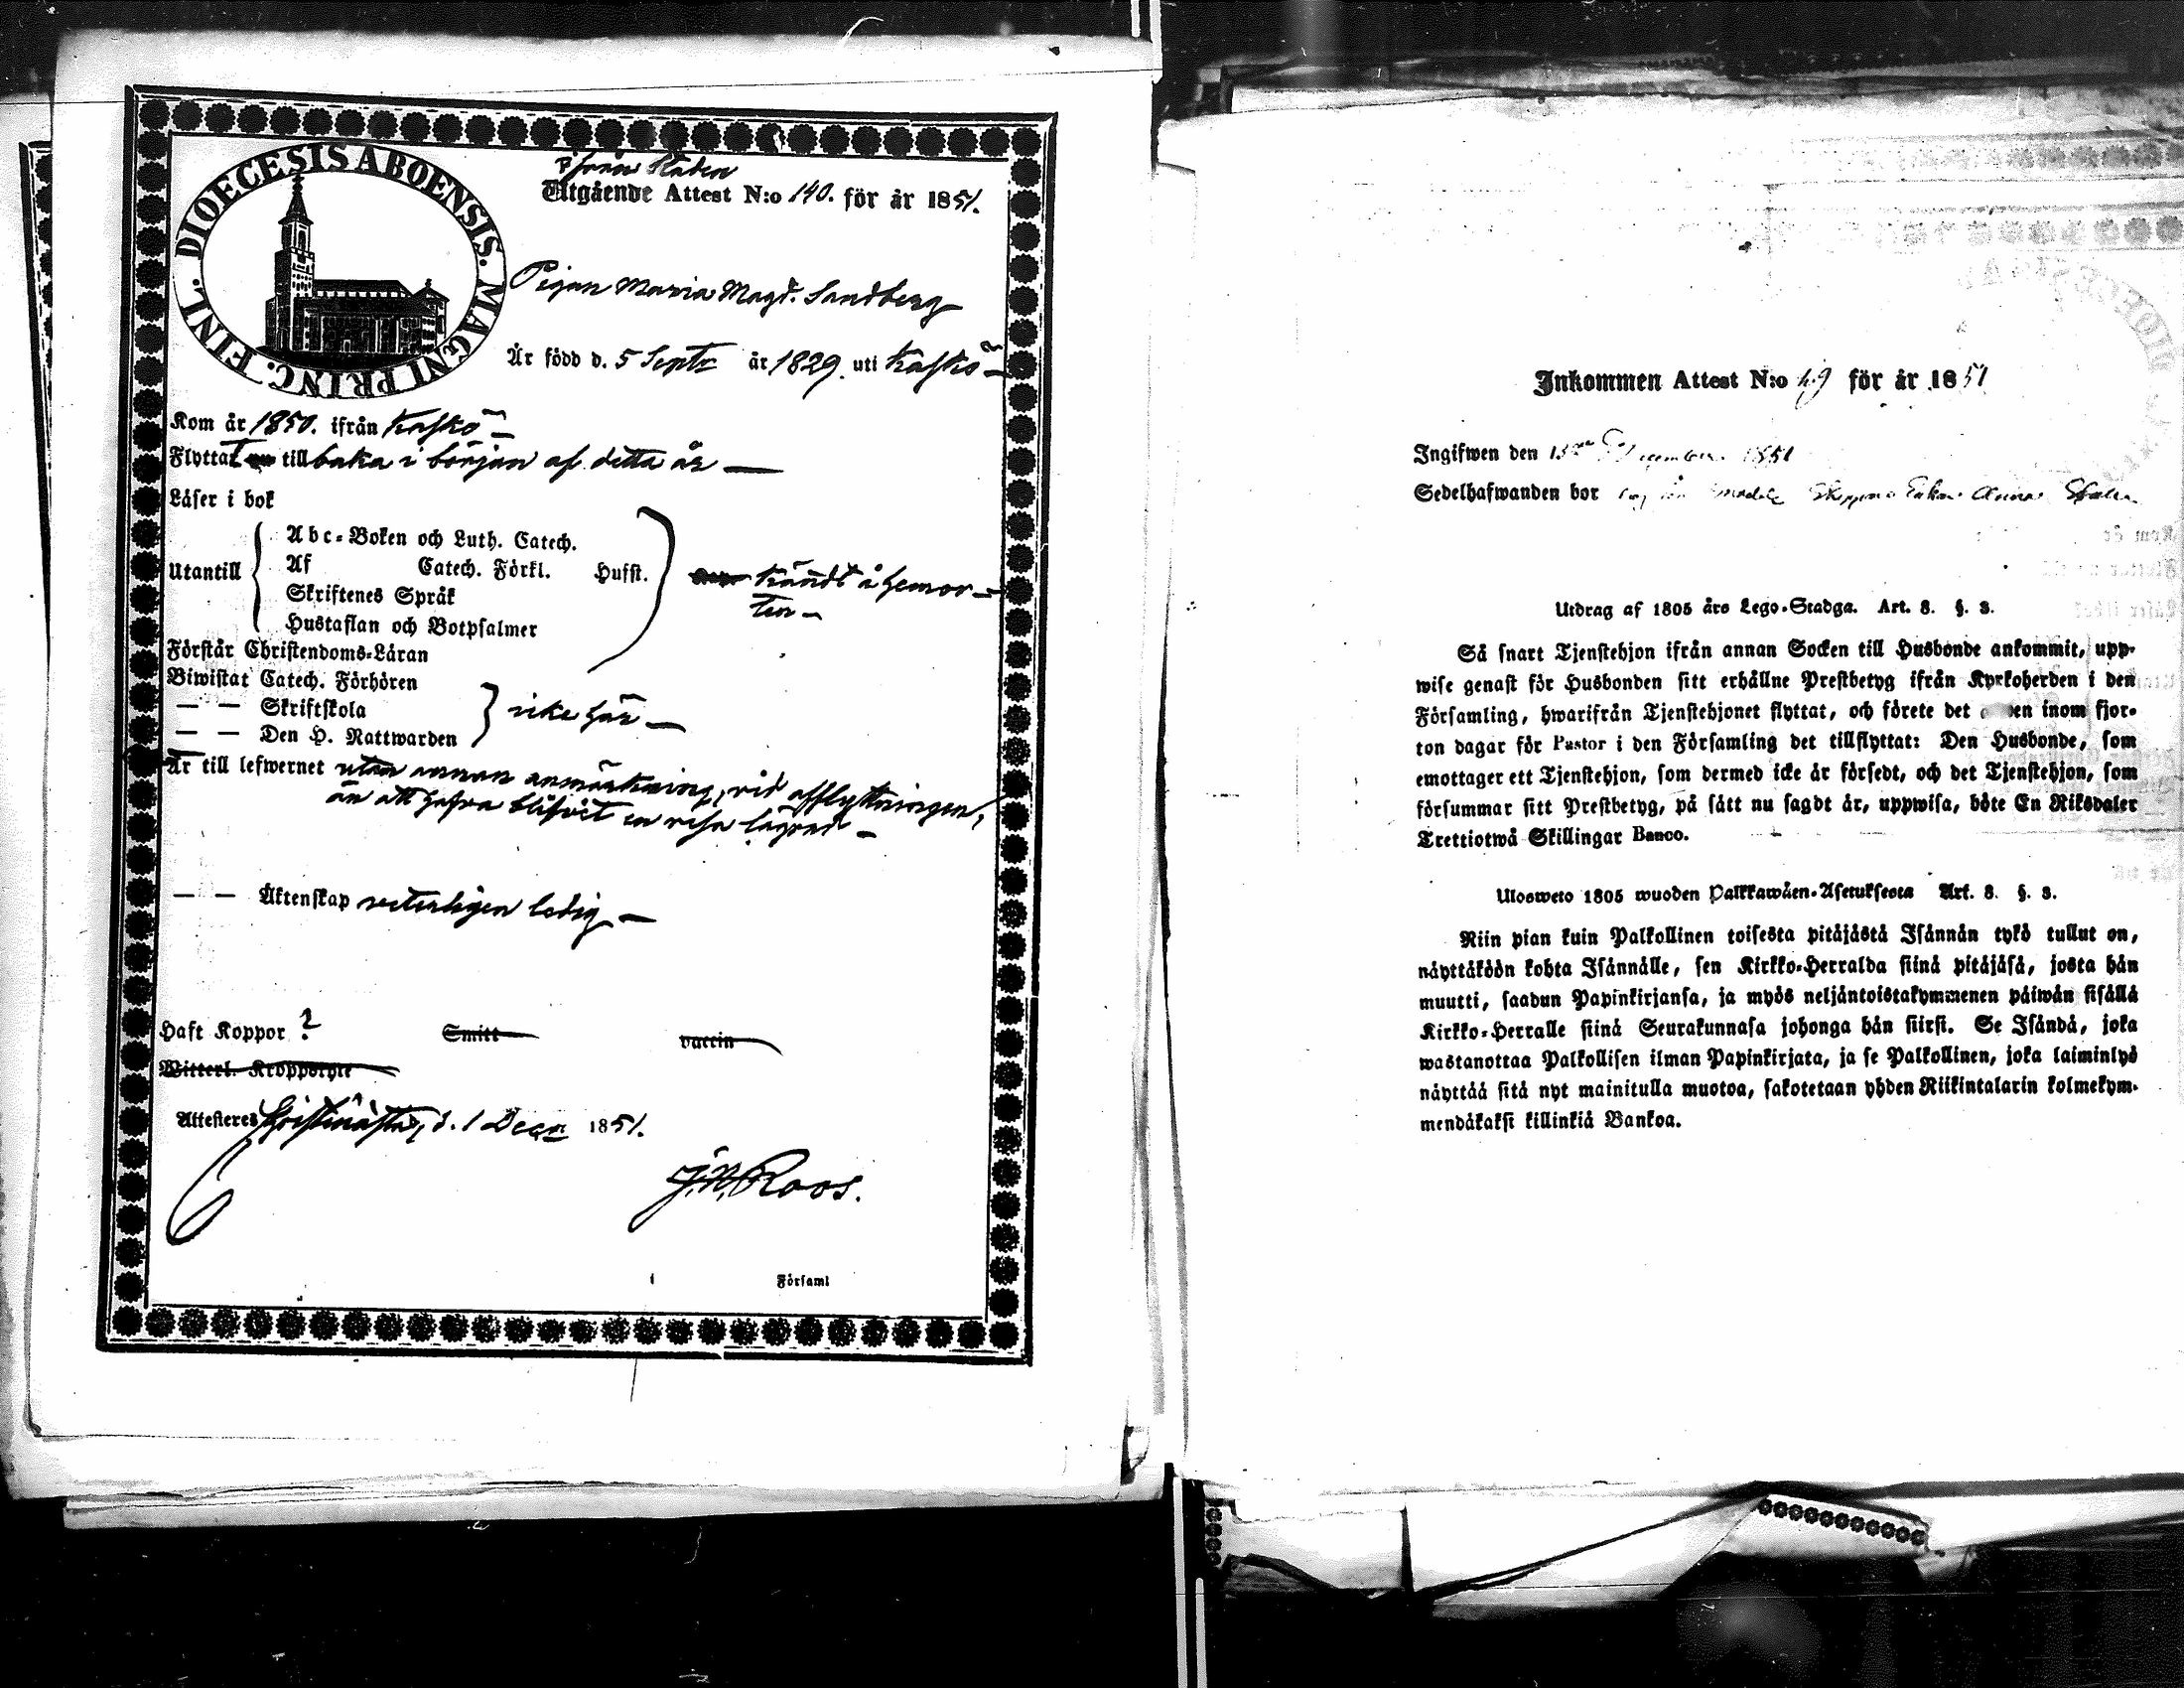 DIOECESIS ABOENSIS. MAGNI PRINC. FINL.
från Staden
Utgående Attest N:o 140. för år 1851.
Pigan Maria Magd. Sandberg
Är född d. 5 Septr år 1829. uti Kaskö
Kom år 1850. ifrån Kaskö
Flyttat tillbaka i början af detta år
Läser i bok
Abc-Boken och Luth. Catech.
Utantill
Af Catech. Förkl. Husst.
Skriftenes Språk
Hustaflan och Botpsalmer
kändt å hemor-
ten
Förstår Christendoms-Läran
Biwistat Catech. Förhören
— — Skriftskola
— — Den H. Nattwarden
icke här
Är till lefwernet utan annan anmärkning, vid afflyttningen,
än att hafva blifvit en resa lägrad
— — Äktenskap veterligen ledig
Haft Koppor ? Smitt vaccin
Witterl. Kroppslyte
Attesteres Christinæstad, d. 1 Decr 1851.
J.N. Roos.
Församl
Inkommen Attest N:o 49 för år 1851
Ingifwen den December 1851
Sedelhafwanden bor Anna
Utdrag af 1805 års Lego-Stadga. Art. 8. §. 3.
Så snart Tjenstehjon ifrån annan Socken till Husbonde ankommit, upp-
wise genast för Husbonden sitt erhållne Prestbetyg ifrån Kyrkoherden i den
Församling, hwarifrån Tjenstehjonet flyttat, och förete det inom fjor-
ton dagar för Pastor i den Församling det tillflyttat: Den Husbonde, som
emottager ett Tjenstehjon, som dermed icke är försedt, och det Tjenstehjon, som
försummar sitt Prestbetyg, på sätt nu sagdt är, uppwisa, böte En Riksdaler
Trettiotwå Skillingar Banco.
Ulosweto 1805 wuoden Palkkawäen-Asetuksesta Art. 8. §. 3.
Niin pian kuin Palkollinen toisesta pitäjästä Isännän tykö tullut on,
näyttäköön kohta Isännälle, sen Kirkko-Herralda siinä pitäjäsä, josta hän
muutti, saadun Papinkirjansa, ja myös neljäntoistakymmenen päiwän sisällä
Kirkko-Herralle siinä Seurakunnasa johonga hän siirsi. Se Isändä, joka
wastanottaa Palkollisen ilman Papinkirjata, ja se Palkollinen, joka laiminlyö
näyttää sitä nyt mainitulla muotoa, sakotetaan yhden Riikintalarin kolmekym-
mendäkaksi killinkiä Bankoa.